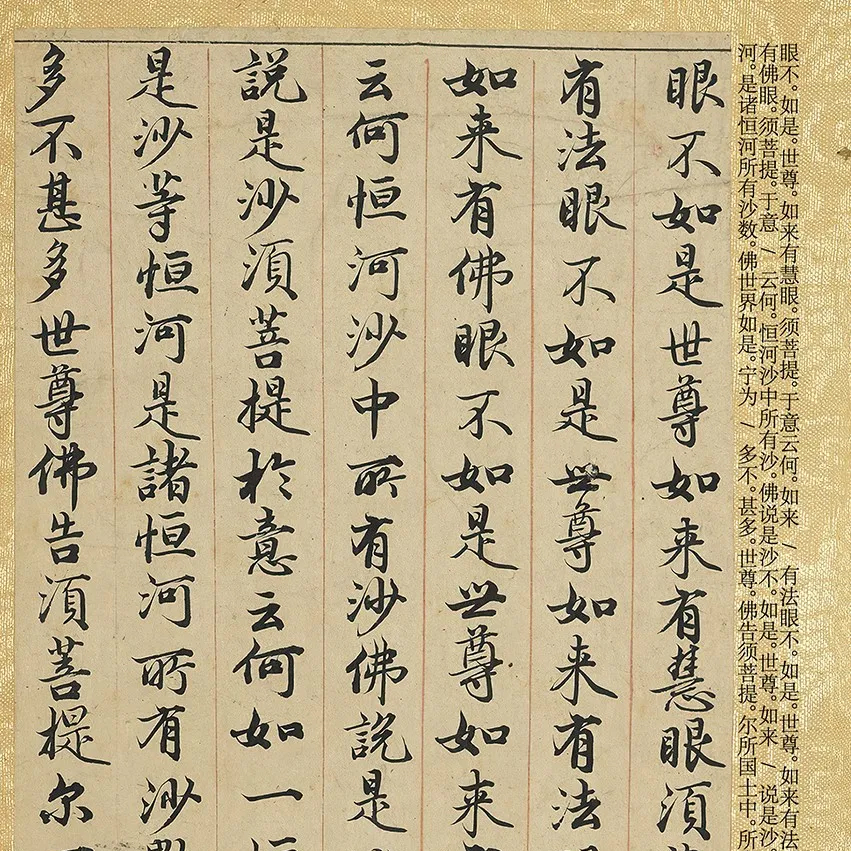 眼不。如是。世尊。如来有慧眼。须菩提。于意云何。如来 / 有法眼不。如是。世尊。如来有法
有佛眼。须菩提。于意 / 云何。恒河沙中所有沙。佛说是沙不。如是。世尊。如来 / 说是沙。
河。是诸恒河所有沙数。佛世界如是。宁为 / 多不。甚多。世尊。佛告须菩提。尔所国土中。所
眼不如是世尊如来有慧眼須
有法眼不如是世尊如来有法
如来有佛眼不如是世尊如来
云何恒河沙中所有沙佛說是
說是沙須菩提於意云何如一
是沙等恒河是諸恒河所有沙
多不甚多世尊佛告須菩提尔